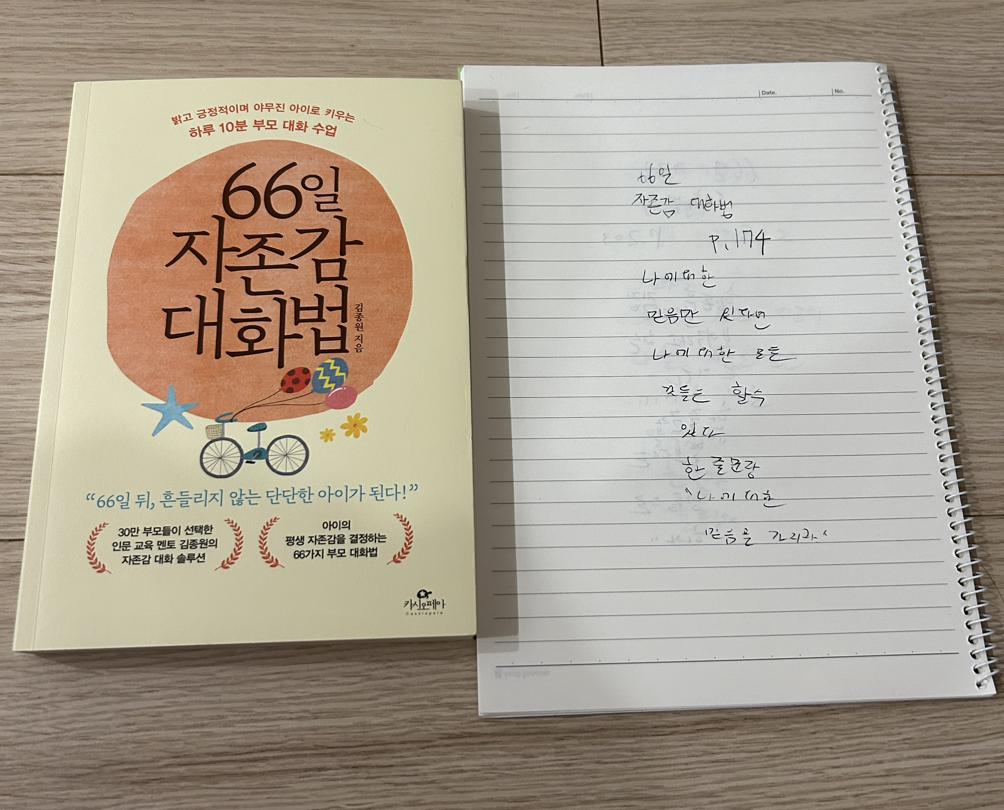 밝고 긍정적이며 야무진 아이로 키우는
하루 10분 부모 대화 수업
66일
자존감
대화법
김종원 지음
“66일 뒤, 흔들리지 않는 단단한 아이가 된다!”
30만 부모들이 선택한
인문 교육 멘토 김종원의
자존감 대화 솔루션
아이의
평생 자존감을 결정하는
66가지 부모 대화법
카시오페아
Cassiopeia
Date.
No.
66일
자존감 대화법
P.174
나에대한
믿음만 있다면
나에대한 모든
것들은 할수
있다
한줄문장
"나에대한
믿음을 가지라"